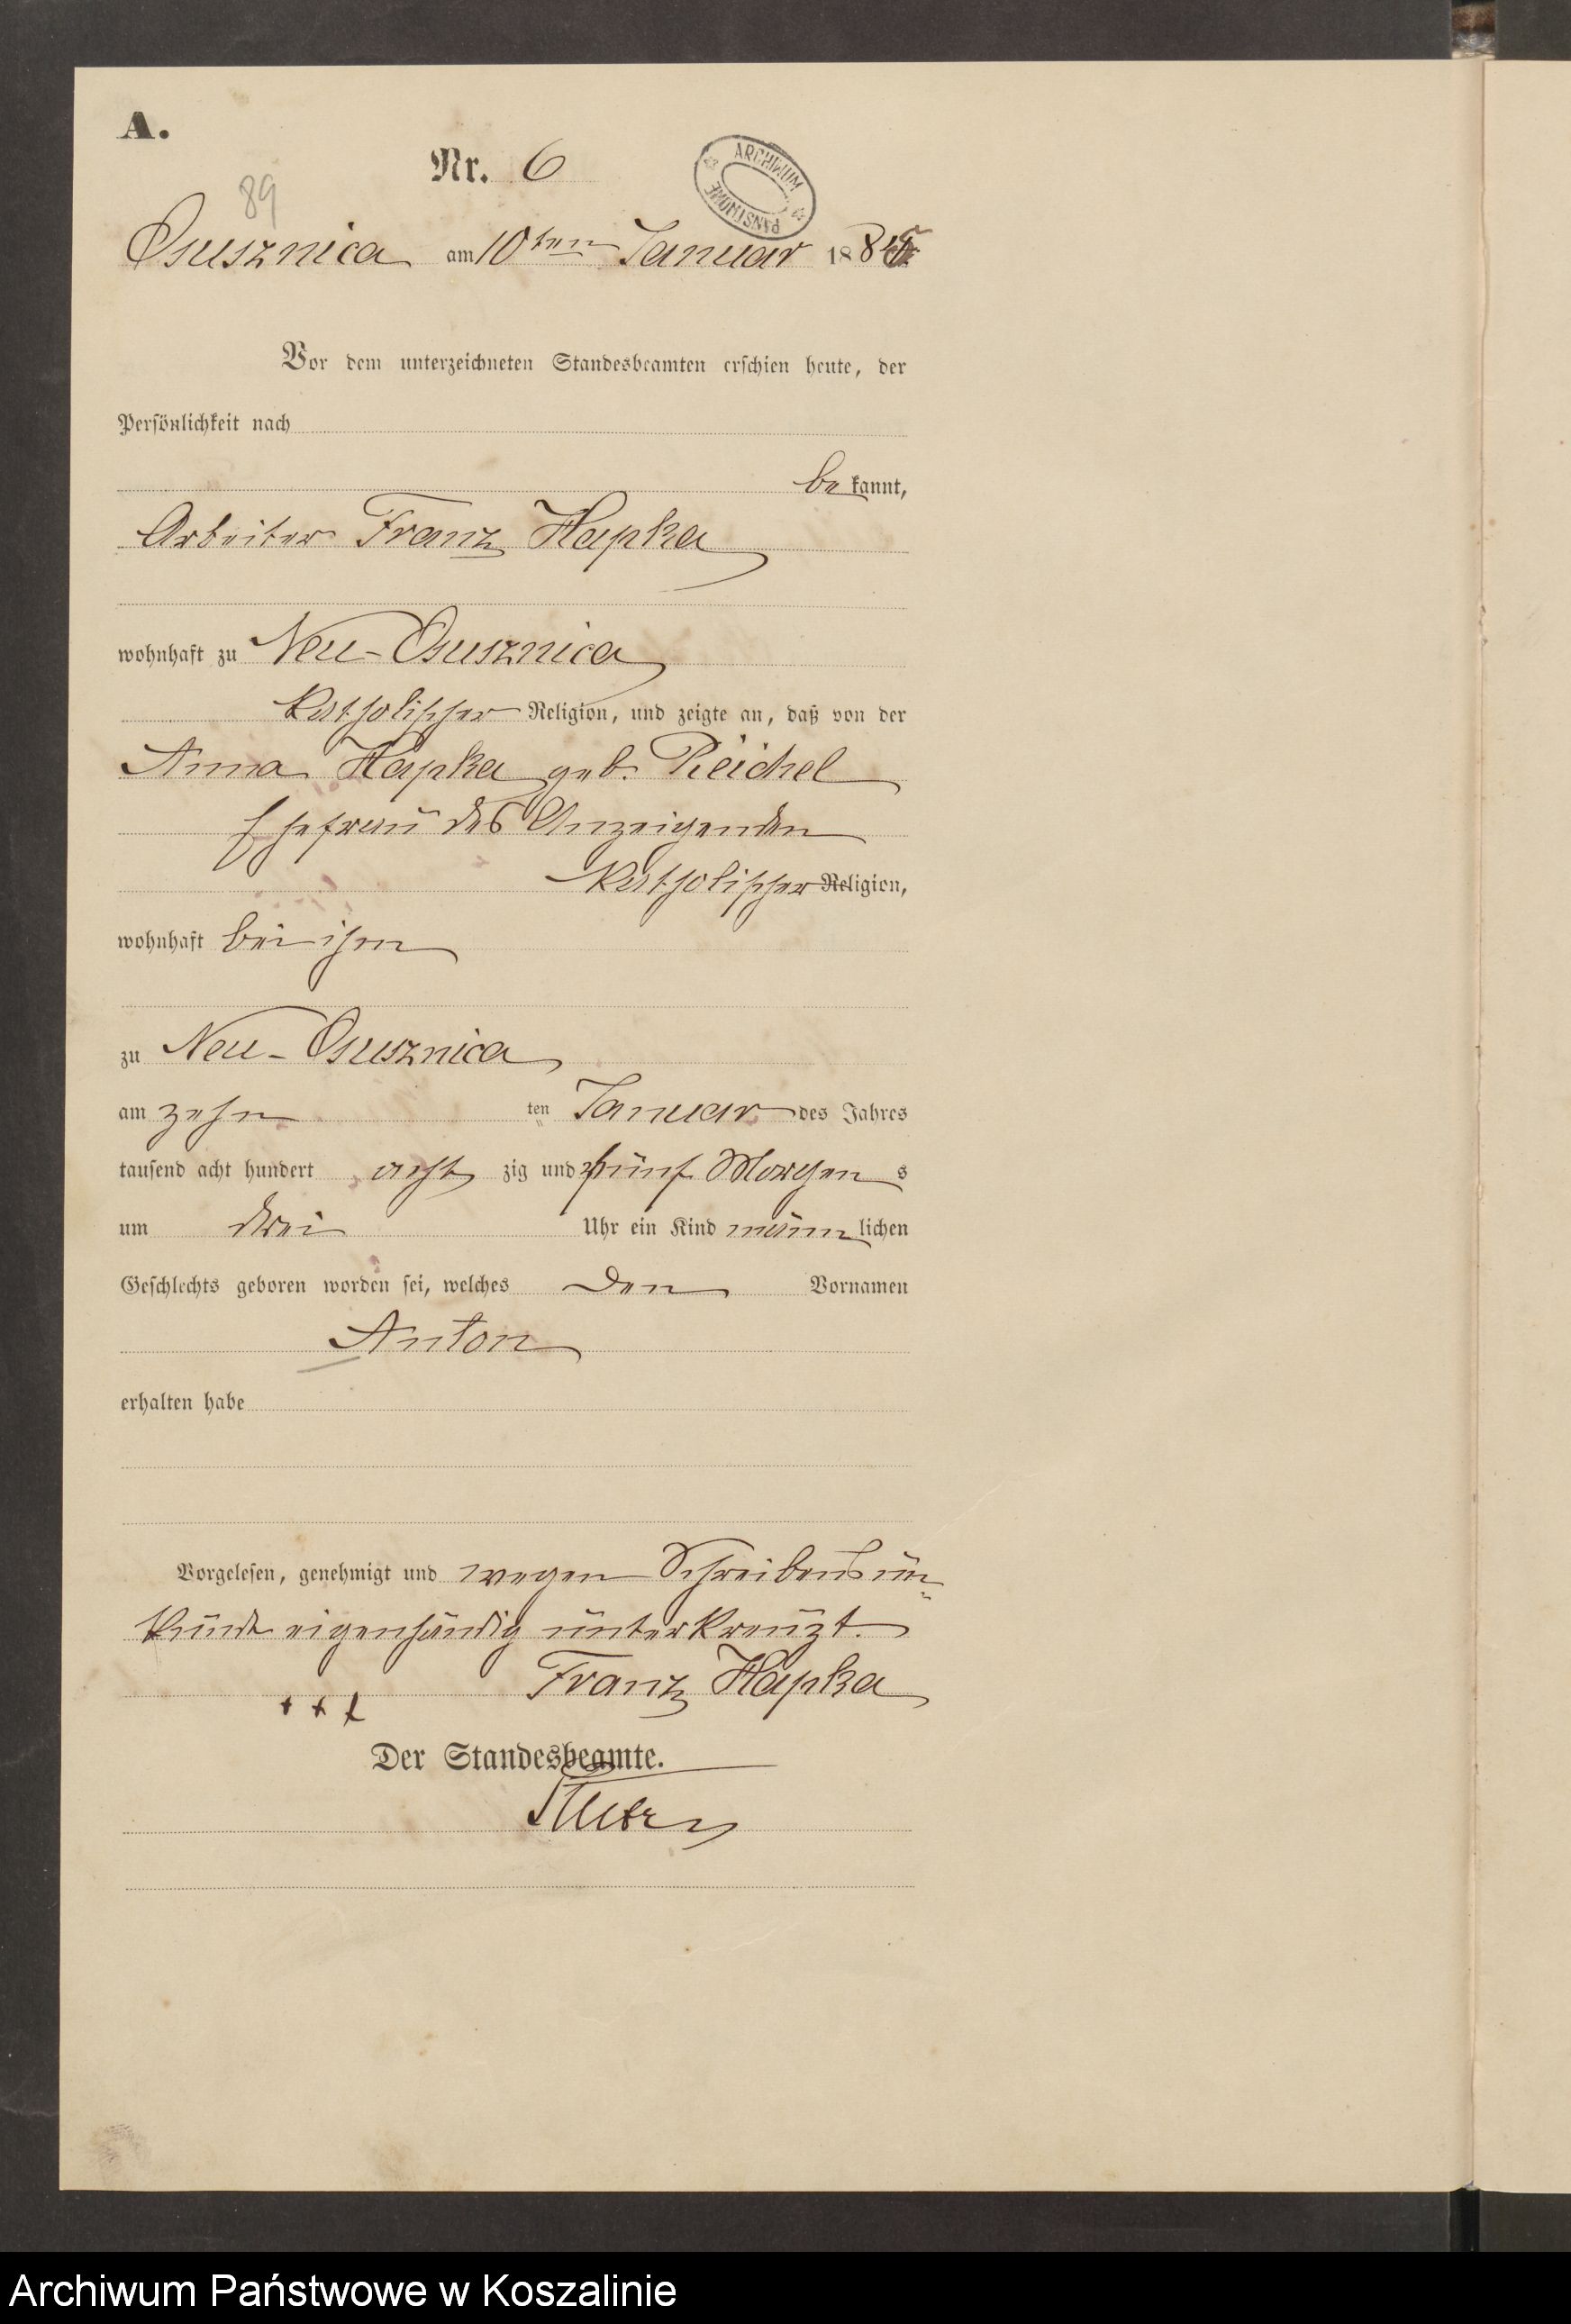 A.
Nr. 6
89
ARCHIWUM PAŃSTWOWE
Osusznica am 10ten Januar 1885
Vor dem unterzeichneten Standesbeamten erschien heute, der
Persönlichkeit nach
be kannt,
Arbeiter Franz Hapka
wohnhaft zu Neu-Osusznica
katholischer Religion, und zeigte an, daß von der
Anna Hapka geb. Reichel
Ehefrau des Anzeigenden
katholischer Religion,
wohnhaft bei ihm
zu Neu-Osusznica
am zehn ten Januar des Jahres
tausend acht hundert acht zig und fünf Morgen s
um drei Uhr ein Kind männ lichen
Geschlechts geboren worden sei, welches den Vornamen
Anton
erhalten habe
Vorgelesen, genehmigt und wegen Schreibensun-
kunde eigenhändig unterkreuzt.
+ + + Franz Hapka
Der Standesbeamte.
Archiwum Państwowe w Koszalinie